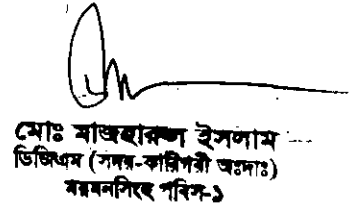 মোঃ মাজহারুল ইসলাম
ডিজিএম (সদর-কারিগরী অঃদাঃ)
ময়মনসিংহ পবিস-১